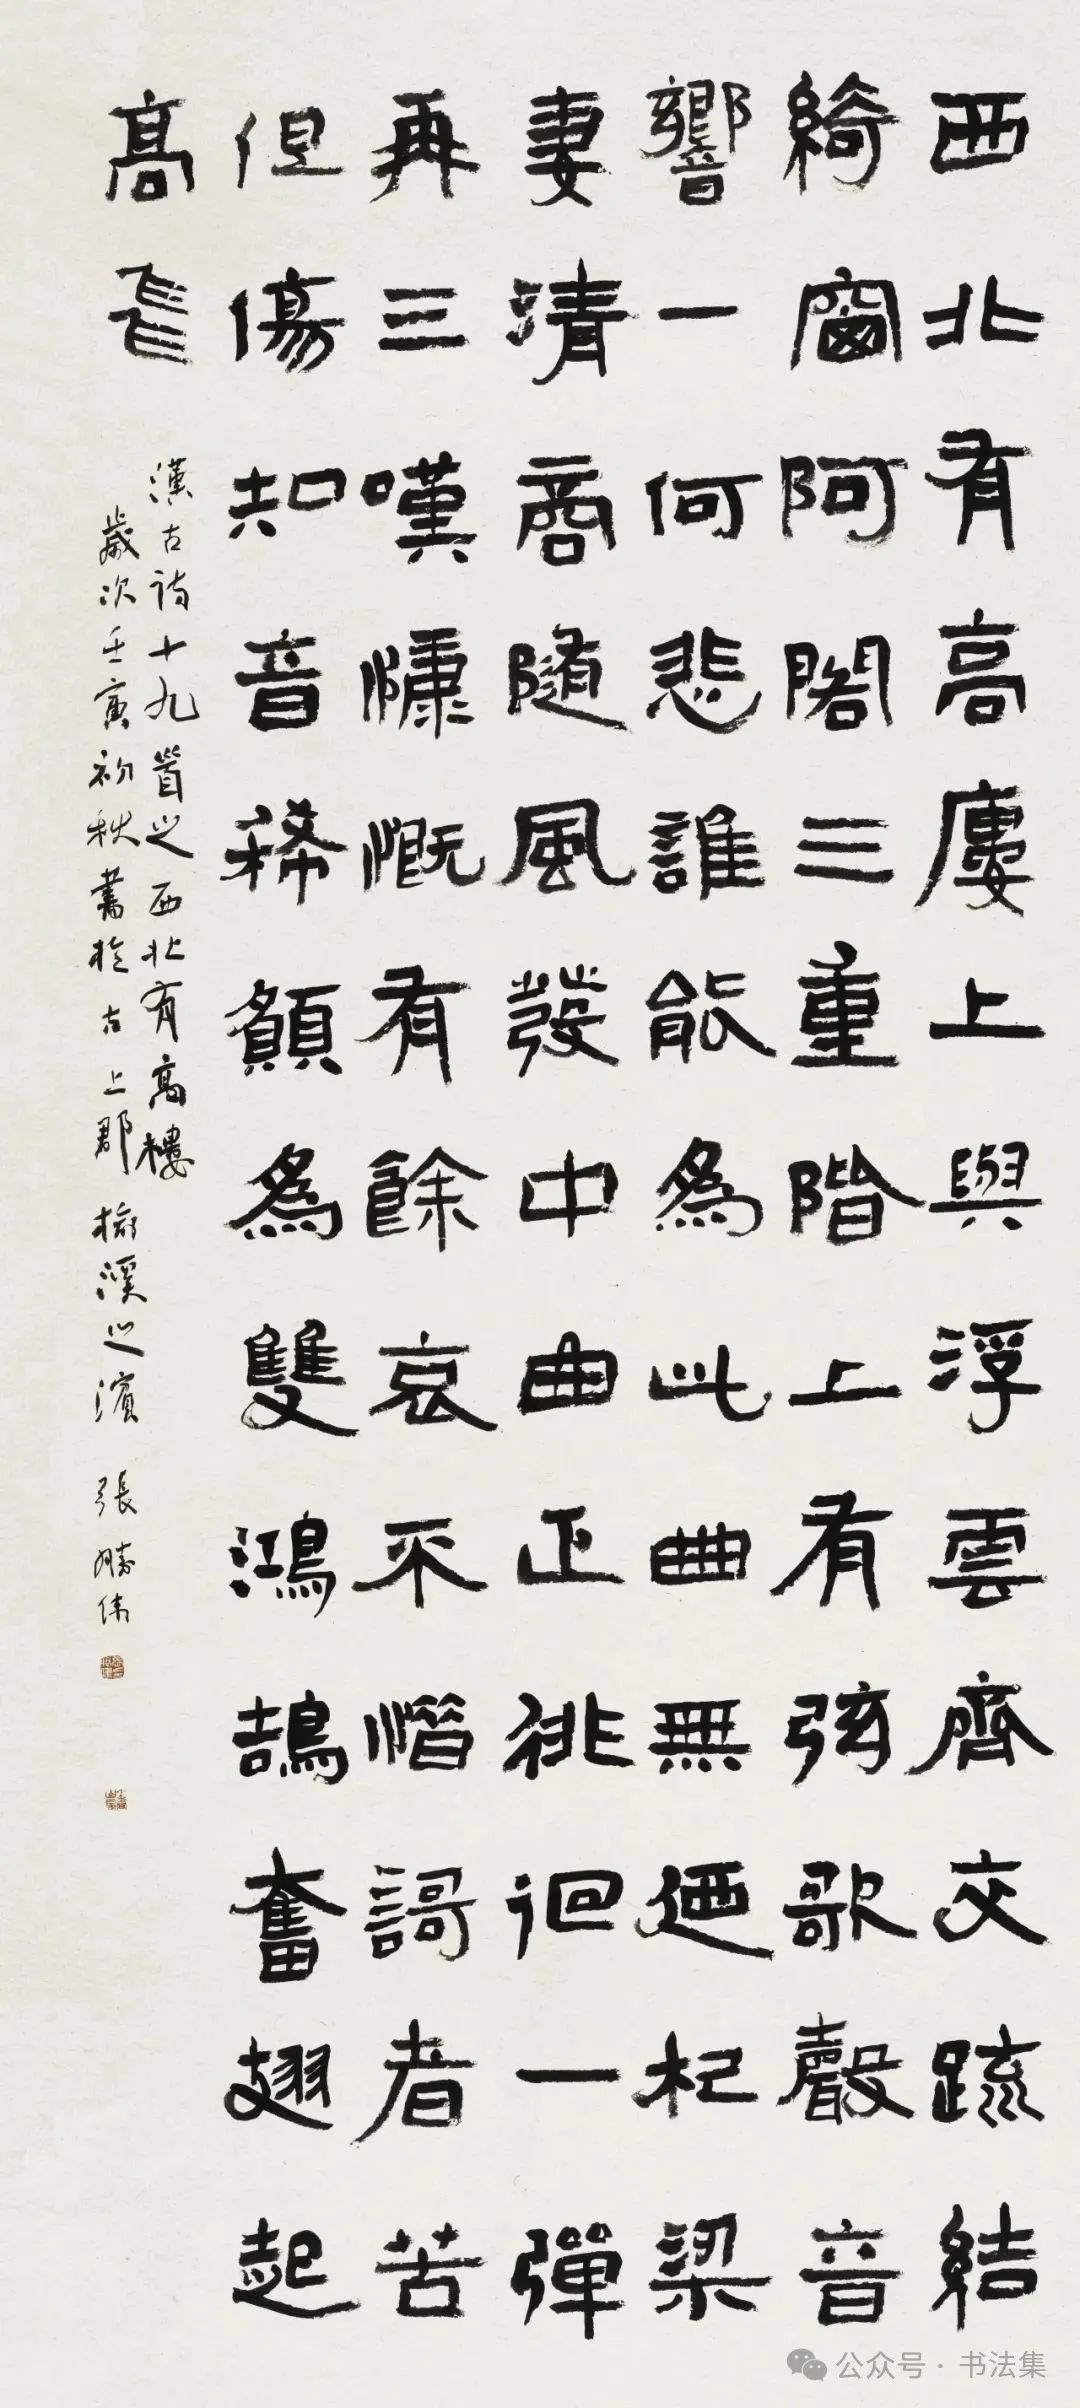 西北有高廔上與浮雲齊交疏結
綺窗阿閣三重階上有弦歌聲音
響一何悲誰能為此曲無廼杞梁
妻清商隨風發中曲正徘徊一彈
再三嘆慷慨有餘哀不惜謌者苦
但傷知音稀願為雙鴻鵠奮翅起
高飛
漢古詩十九首之西北有高樓
歲次壬寅初秋書於古上郡榆溪之濱 張勝伟
公众号·书法集